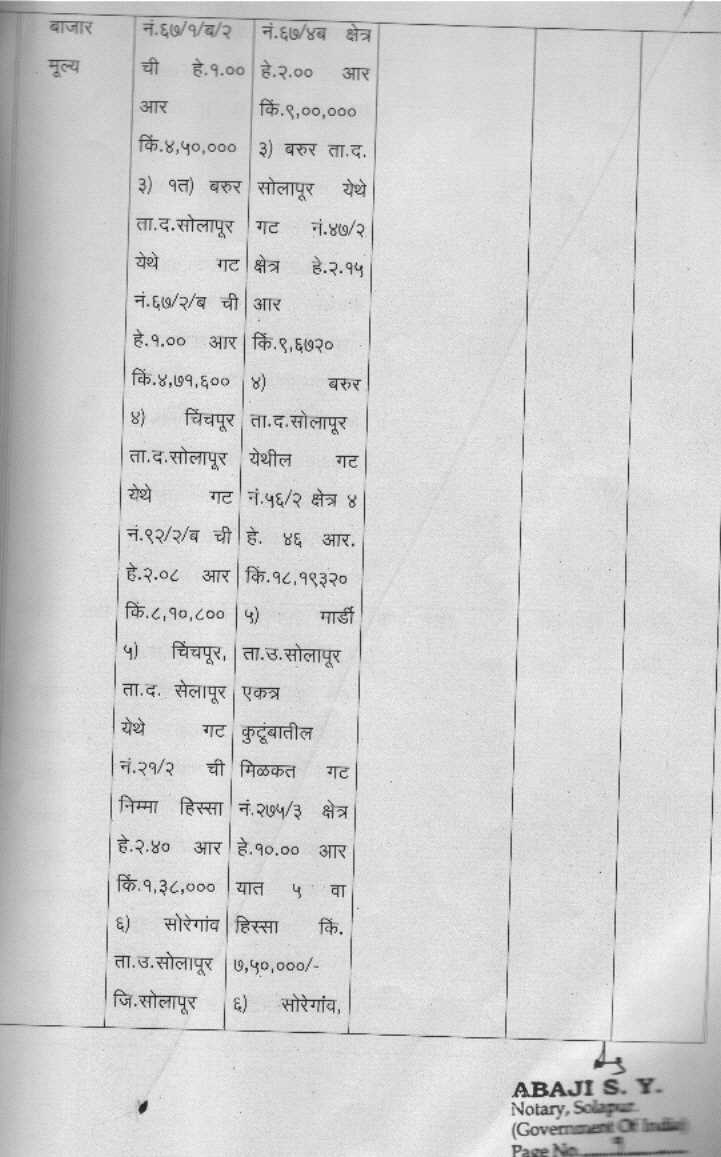 बाजार
मूल्य
नं.६७/१/ब/२
ची हे.१.००
आर
किं.४,५०,०००
३) १त) बरुर
ता.द.सोलापूर
येथे गट
नं.६७/२/ब ची
हे.१.०० आर
किं.४,७१,६००
४) चिंचपूर
ता.द.सोलापूर
येथे गट
नं.९२/२/ब ची
हे.२.०८ आर
किं.८,१०,८००
५) चिंचपूर,
ता.द. सेलापूर
येथे गट
नं.२१/२ ची
निम्मा हिस्सा
हे.२.४० आर
किं.१,३८,०००
६) सोरेगांव
ता.उ.सोलापूर
जि.सोलापूर
नं.६७/४ब क्षेत्र
हे.२.०० आर
किं.९,००,०००
३) बरुर ता.द.
सोलापूर येथे
गट नं.४७/२
क्षेत्र हे.२.१५
आर
किं.९,६७२०
४) बरुर
ता.द.सोलापूर
येथील गट
नं.५६/२ क्षेत्र ४
हे. ४६ आर.
किं.१८,१९३२०
५) मार्डी
ता.उ.सोलापूर
एकत्र
कुटूंबातील
मिळकत गट
नं.२७५/३ क्षेत्र
हे.१०.०० आर
यात ५ वा
हिस्सा किं.
७,५०,०००/-
६) सोरेगांव,
ABAJI S. Y.
Notary, Solapur.
(Government Of India)
Page No.